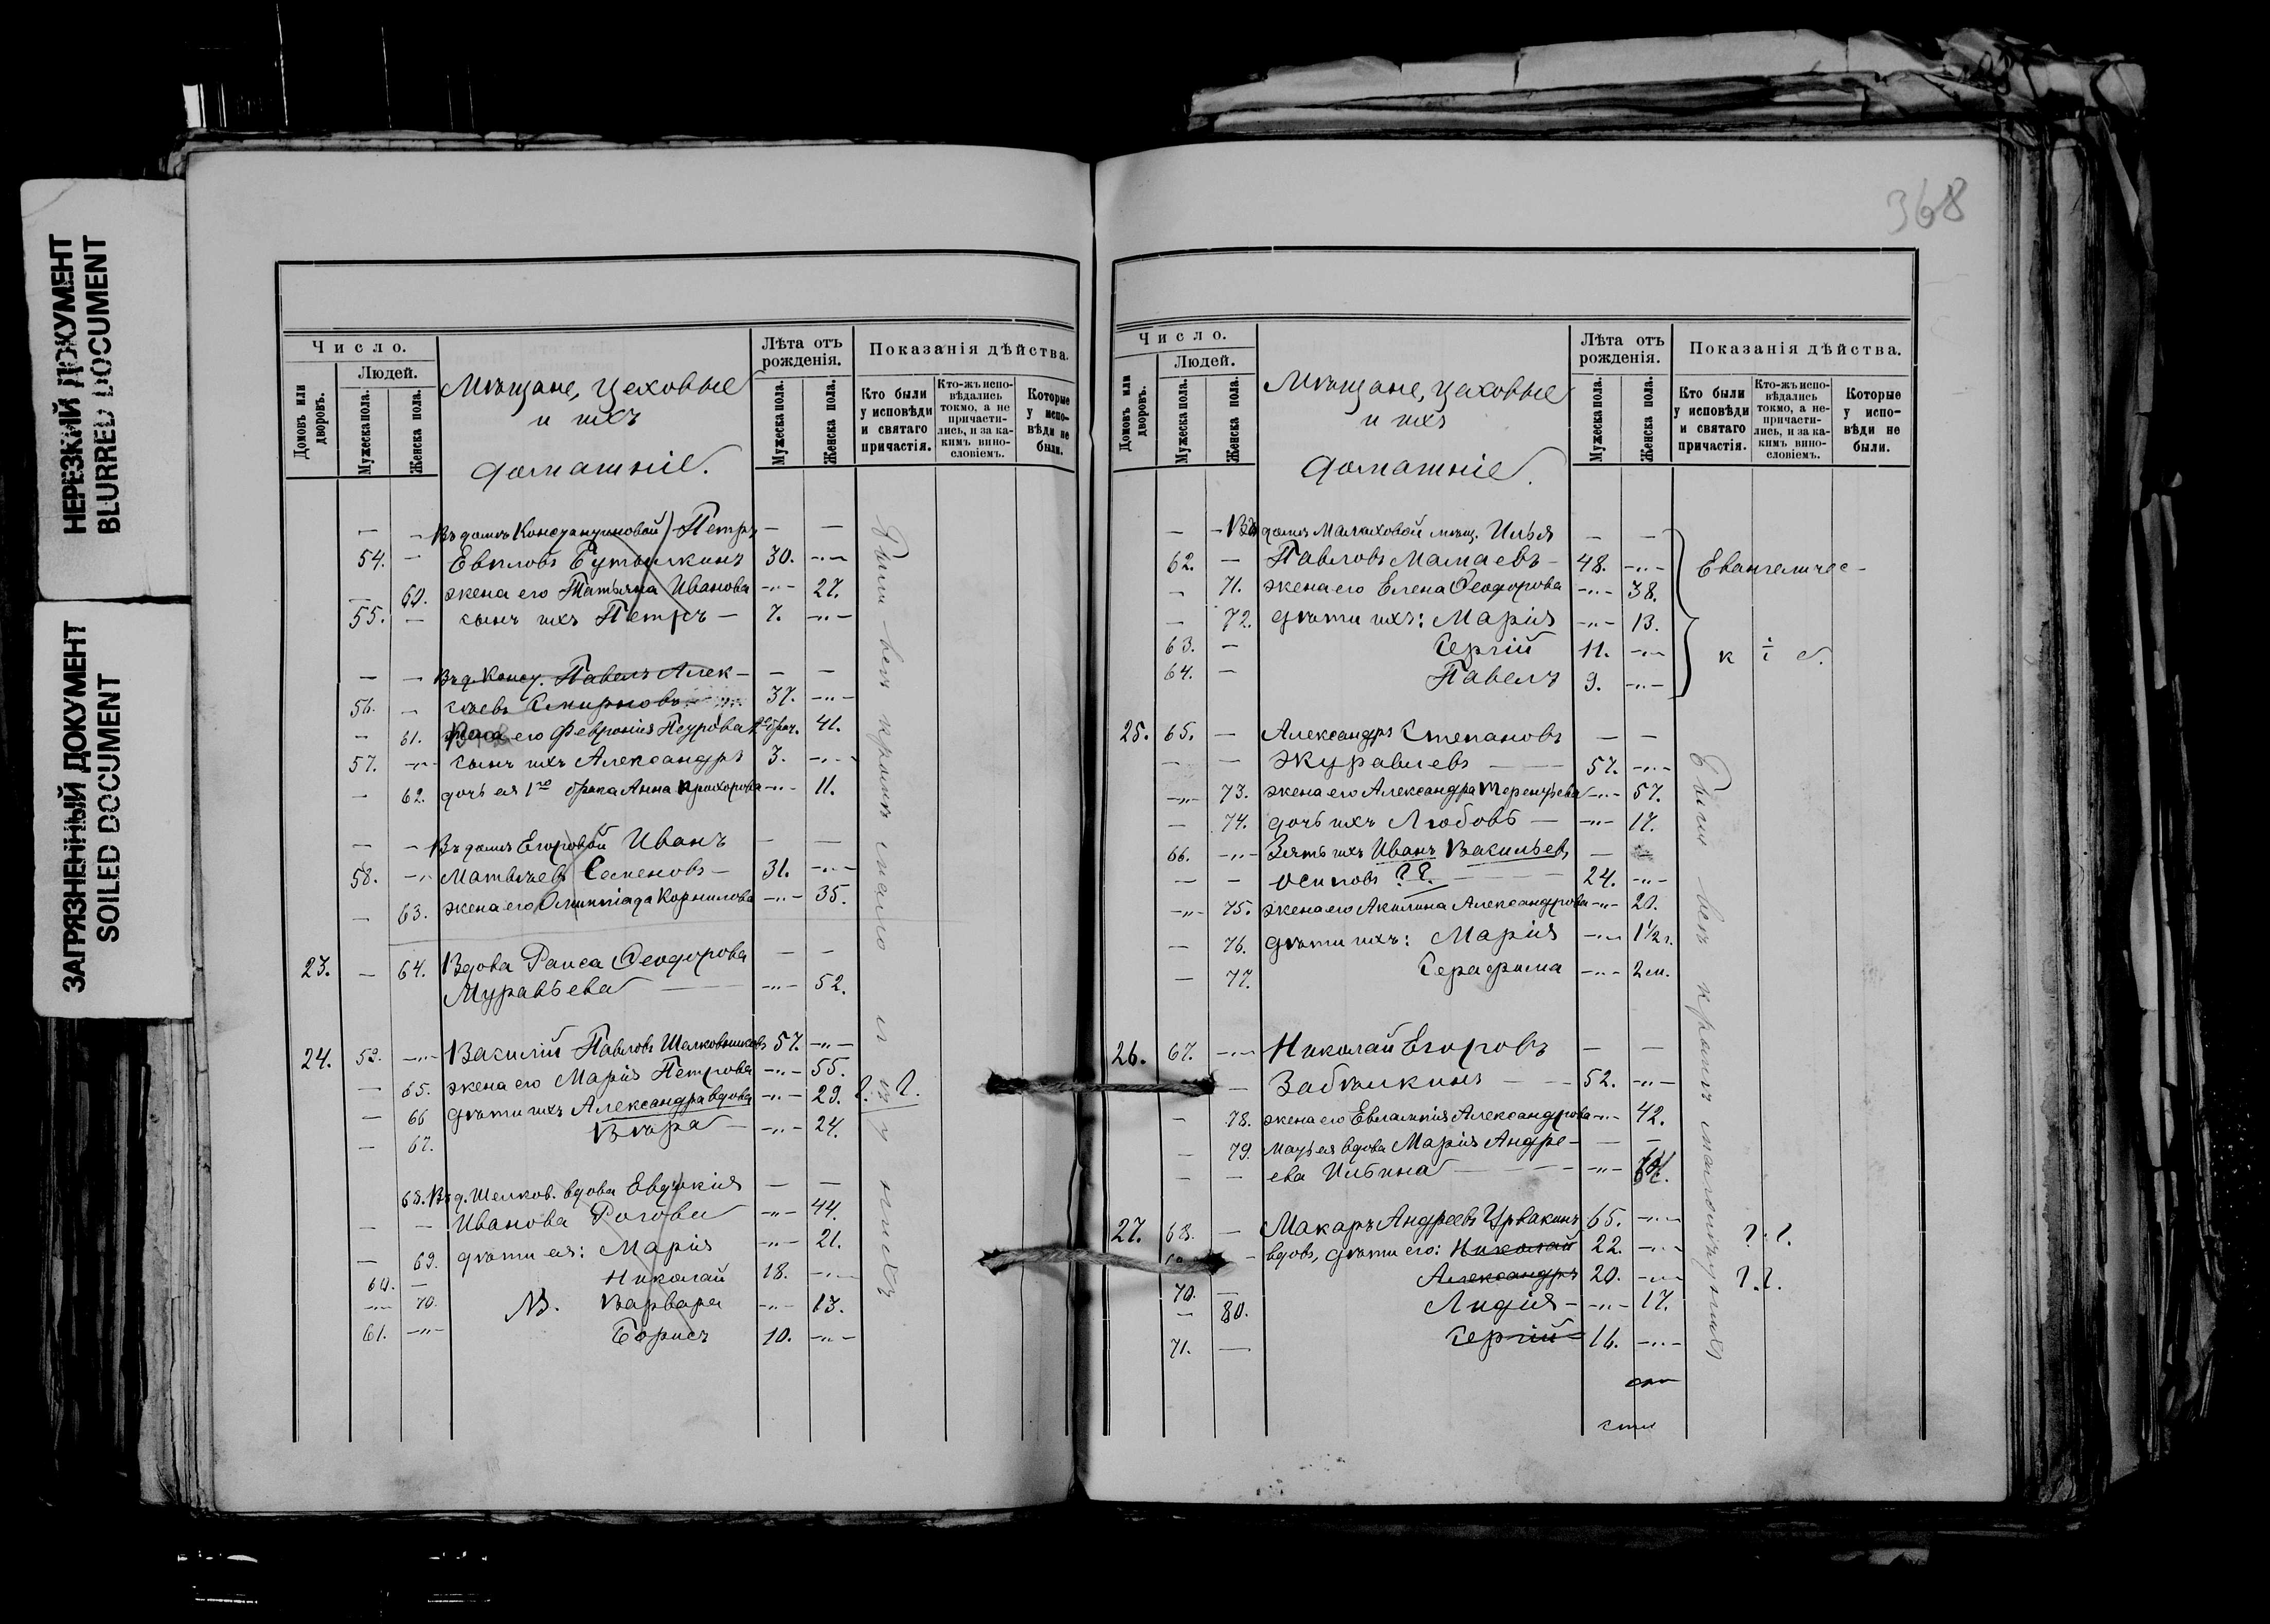 НЕРЕЗКИЙ ДОКУМЕНТ
BLURRED DOCUMENT
ЗАГРЯЗНЕННЫЙ ДОКУМЕНТ
SOILED DOCUMENT
Число.
Людей.
Домовъ или дворовъ.
Мужеска пола.
Женска пола.
Мѣщане, цеховые
и ихъ
домашніе.
Лѣта отъ рожденія.
Мужеска пола.
Женска пола.
Показанія дѣйства.
Кто были у исповѣди и святаго причастія.
Кто-жъ исповѣдались токмо, а не причастились, и за какимъ винословіемъ.
Которые у исповѣди не были.
— — Въ домѣ Константиновой Петръ — —
54. — Евпловъ Бутылкинъ 30. -"-
— 60. жена его Татьяна Иванова -"- 27.
55. — сынъ ихъ Петръ — 7. -"-
— — Въ д. Конст. Павелъ Алек- — —
56. — сѣевъ Смирновъ 37. -"-
— 61. жена его Февронія Петрова 2го брач. 41.
57. -"- сынъ ихъ Александръ 3. -"-
— 62. дочь ея 1го брака Анна Прохорова -"- 11.
— — Въ домѣ Егоровой Иванъ — —
58. -"- Матвѣевъ Семеновъ — 31. -"-
— 63. жена его Олимпіада Корнилова -"- 35.
23. — 64. Вдова Раиса Ѳеодорова — —
Муравьева -"- 52.
24. 59. -"- Василій Павловъ Шелковниковъ 57. -"-
— 65. жена его Марія Петрова -"- 55.
— 66 дѣти ихъ Александра вдова -"- 29. ?. ?.
— 67. Вѣра — -"- 24.
68. Въ д. Шелков. вдова Евдокія — —
— — Иванова Рогова -"- 44.
— 69. дѣти ея: Марія -"- 21.
60. — Николай 18. -"-
-"- 70. NB. Варвара -"- 13.
61. -"- Борисъ 10. -"-
Были всѣ кромѣ
368
Число.
Людей.
Домовъ или дворовъ.
Мужеска пола.
Женска пола.
Мѣщане, цеховые
и ихъ
домашніе.
Лѣта отъ рожденія.
Мужеска пола.
Женска пола.
Показанія дѣйства.
Кто были у исповѣди и святаго причастія.
Кто-жъ исповѣдались токмо, а не причастились, и за какимъ винословіемъ.
Которые у исповѣди не были.
— — Въ домѣ Малаховой мѣщ. Илья — —
62. — Павловъ Мамаевъ — 48. -"- Евангеличес-
— 71. жена его Елена Ѳеодорова -"- 38.
— 72. дѣти ихъ: Марія -"- 13.
63. — Сергій 11. -"- к і е.
64. — Павелъ 9. -"-
25. 65. — Александръ Степановъ — —
— — Журавлевъ — 57. -"-
-"- 73. жена его Александра Терентьева -"- 57.
— 74. дочь ихъ Любовь — -"- 17.
66. -"- Зять ихъ Иванъ Васильевъ — —
— — Осиповъ ?? 24. -"-
-"- 75. жена его Акилина Александрова -"- 20.
— 76. дѣти ихъ: Марія -"- 1½ г.
— 77. Серафима -"- 2 м.
26. 67. -"- Николай Егоровъ — —
— Забѣлкинъ — 52. -"-
— 78. жена его Евлампія Александрова -"- 42.
— 79. мать ея вдова Марія Андре- — —
— — ева Ильина -"-
27. 68. — Макаръ Андреевъ 65. -"-
вдовъ, дѣти его: Николай 22. -"- ?. ?.
70. — Александръ 20. -"- ?. ?.
— 80. Лидія — -"- 17.
71. — Сергій 16. -"-
Были всѣ кромѣ малолѣтнихъ